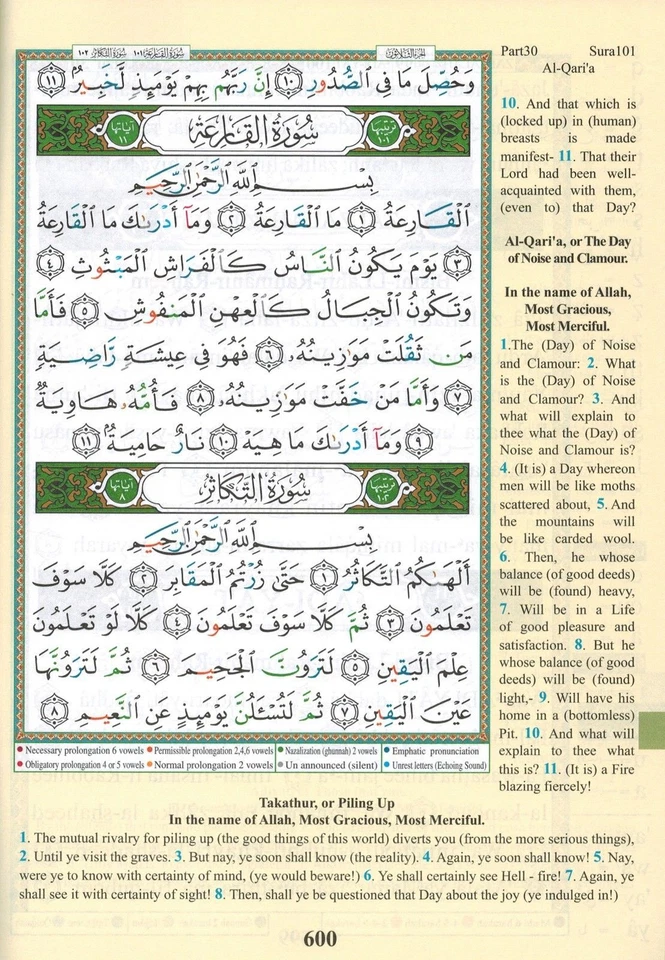 سُورَةُ القَارِعَة ١٠١ سُورَةُ التَّكَاثُر ١٠٢
الجُزءُ الثَّلَاثُون
وَحُصِّلَ مَا فِي ٱلصُّدُورِ ١٠ إِنَّ رَبَّهُم بِهِمْ يَوْمَئِذٍ لَّخَبِيرٌۢ ١١
ترتيبها ١٠١ سُورَةُ القَارِعَةِ آياتها ١١
بِسْمِ ٱللَّهِ ٱلرَّحْمَٰنِ ٱلرَّحِيمِ
ٱلْقَارِعَةُ ١ مَا ٱلْقَارِعَةُ ٢ وَمَآ أَدْرَىٰكَ مَا ٱلْقَارِعَةُ
٣ يَوْمَ يَكُونُ ٱلنَّاسُ كَٱلْفَرَاشِ ٱلْمَبْثُوثِ ٤
وَتَكُونُ ٱلْجِبَالُ كَٱلْعِهْنِ ٱلْمَنفُوشِ ٥ فَأَمَّا
مَن ثَقُلَتْ مَوَٰزِينُهُۥ ٦ فَهُوَ فِي عِيشَةٍ رَّاضِيَةٍ
٧ وَأَمَّا مَنْ خَفَّتْ مَوَٰزِينُهُۥ ٨ فَأُمُّهُۥ هَاوِيَةٌ
٩ وَمَآ أَدْرَىٰكَ مَا هِيَهْ ١٠ نَارٌ حَامِيَةٌۢ ١١
ترتيبها ١٠٢ سُورَةُ التَّكَاثُرِ آياتها ٨
بِسْمِ ٱللَّهِ ٱلرَّحْمَٰنِ ٱلرَّحِيمِ
أَلْهَىٰكُمُ ٱلتَّكَاثُرُ ١ حَتَّىٰ زُرْتُمُ ٱلْمَقَابِرَ ٢ كَلَّا سَوْفَ
تَعْلَمُونَ ٣ ثُمَّ كَلَّا سَوْفَ تَعْلَمُونَ ٤ كَلَّا لَوْ تَعْلَمُونَ
عِلْمَ ٱلْيَقِينِ ٥ لَتَرَوُنَّ ٱلْجَحِيمَ ٦ ثُمَّ لَتَرَوُنَّهَا
عَيْنَ ٱلْيَقِينِ ٧ ثُمَّ لَتُسْـَٔلُنَّ يَوْمَئِذٍ عَنِ ٱلنَّعِيمِ ٨
Necessary prolongation 6 vowels Permissible prolongation 2,4,6 vowels Nazalization (ghunnah) 2 vowels Emphatic pronunciation
Obligatory prolongation 4 or 5 vowels Normal prolongation 2 vowels Un announced (silent) Unrest letters (Echoing Sound)
Part30 Sura101
Al-Qari'a
10. And that which is
(locked up) in (human)
breasts is made
manifest- 11. That their
Lord had been well-
acquainted with them,
(even to) that Day?
Al-Qari'a, or The Day
of Noise and Clamour.
In the name of Allah,
Most Gracious,
Most Merciful.
1.The (Day) of Noise
and Clamour: 2. What
is the (Day) of Noise
and Clamour? 3. And
what will explain to
thee what the (Day) of
Noise and Clamour is?
4. (It is) a Day whereon
men will be like moths
scattered about, 5. And
the mountains will
be like carded wool.
6. Then, he whose
balance (of good deeds)
will be (found) heavy,
7. Will be in a Life
of good pleasure and
satisfaction. 8. But he
whose balance (of good
deeds) will be (found)
light,- 9. Will have his
home in a (bottomless)
Pit. 10. And what will
explain to thee what
this is? 11. (It is) a Fire
blazing fiercely!
Takathur, or Piling Up
In the name of Allah, Most Gracious, Most Merciful.
1. The mutual rivalry for piling up (the good things of this world) diverts you (from the more serious things),
2. Until ye visit the graves. 3. But nay, ye soon shall know (the reality). 4. Again, ye soon shall know! 5. Nay,
were ye to know with certainty of mind, (ye would beware!) 6. Ye shall certainly see Hell - fire! 7. Again, ye
shall see it with certainty of sight! 8. Then, shall ye be questioned that Day about the joy (ye indulged in!)
600